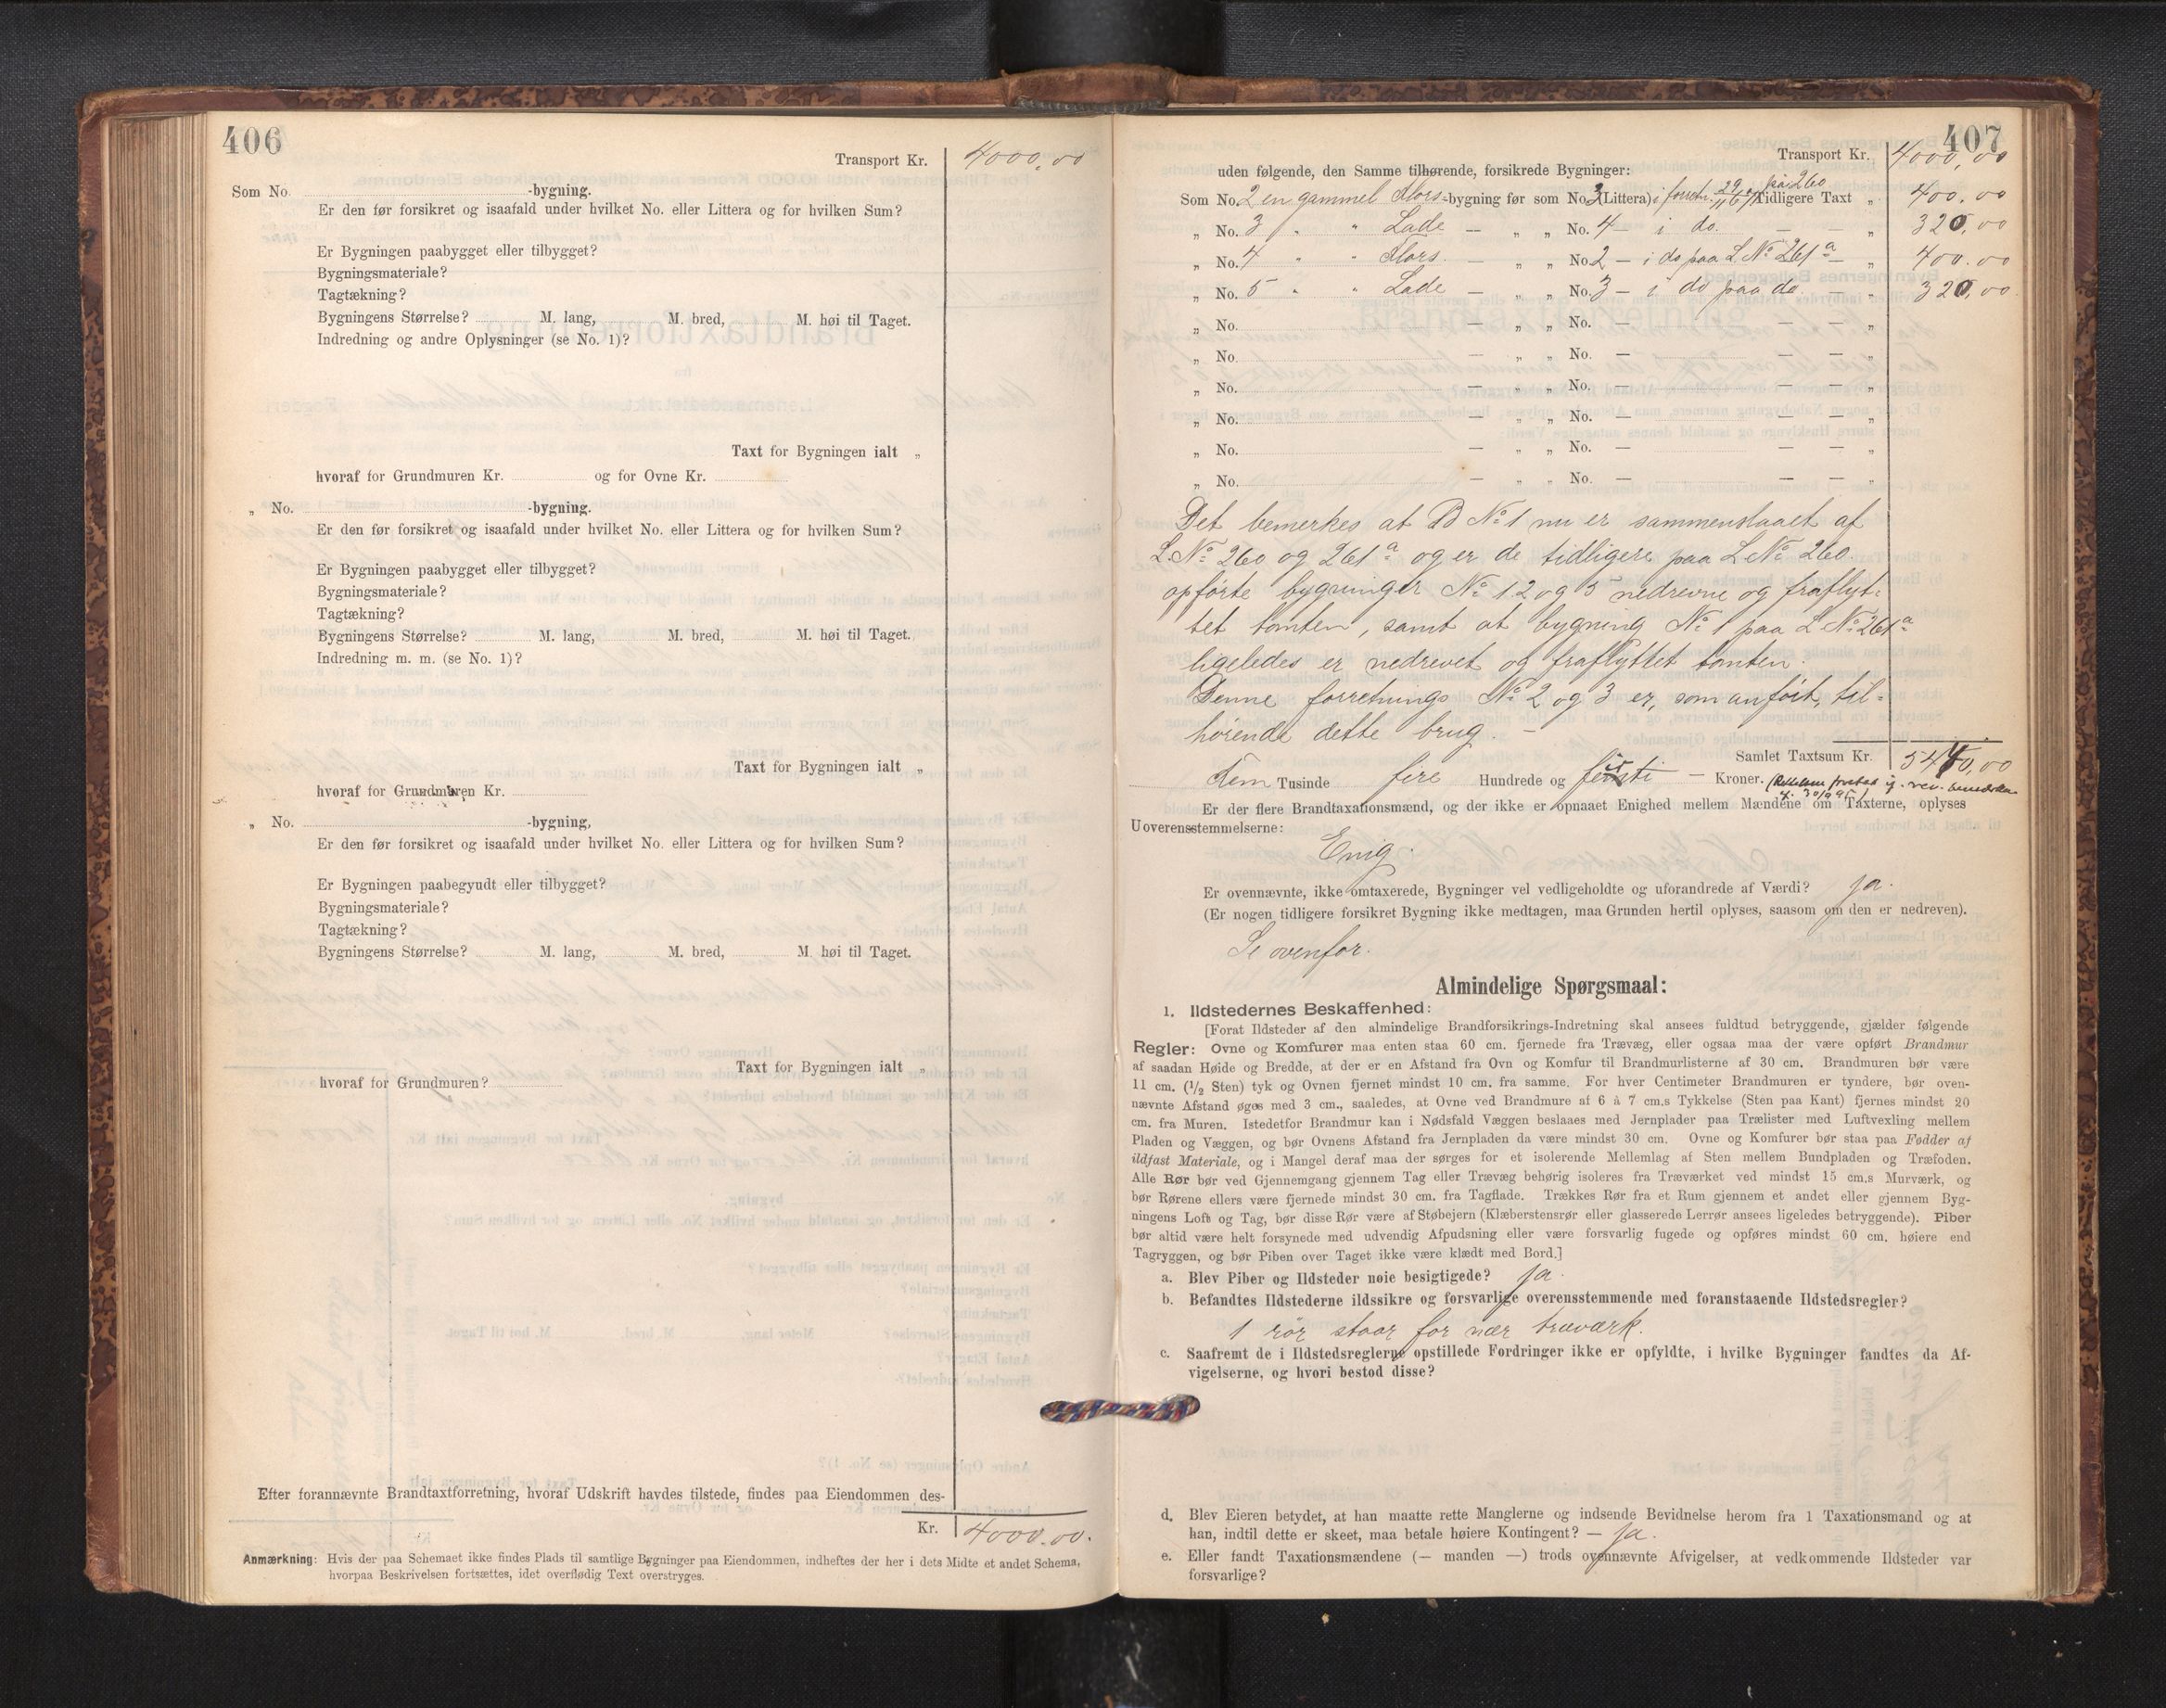 406
Transport Kr. 4000,00
Som No. -bygning.
Er den før forsikret og isaafald under hvilket No. eller Littera og for hvilken Sum?
Er Bygningen paabygget eller tilbygget?
Bygningsmateriale?
Tagtækning?
Bygningens Størrelse? M. lang, M. bred, M. høi til Taget.
Indredning og andre Oplysninger (se No. 1)?
Taxt for Bygningen ialt „
hvoraf for Grundmuren Kr. og for Ovne Kr.
„ No. -bygning.
Er den før forsikret og isaafald under hvilket No. eller Littera og for hvilken Sum?
Er Bygningen paabygget eller tilbygget?
Bygningsmateriale?
Tagtækning?
Bygningens Størrelse? M. lang, M. bred, M. høi til Taget.
Indredning m. m. (se No. 1)?
Taxt for Bygningen ialt „
hvoraf for Grundmuren Kr.
„ No. -bygning,
Er den før forsikret og isaafald under hvilket No. eller Littera og for hvilken Sum?
Er Bygningen paabegyudt eller tilbygget?
Bygningsmateriale?
Tagtækning?
Bygningens Størrelse? M. lang, M. bred, M. høi til Taget.
Taxt for Bygningen ialt „
hvoraf for Grundmuren?
Efter forannævnte Brandtaxtforretning, hvoraf Udskrift havdes tilstede, findes paa Eiendommen des-
Kr. 4000.00.
Anmærkning: Hvis der paa Schemaet ikke findes Plads til samtlige Bygninger paa Eiendommen, indheftes der her i dets Midte et andet Schema,
hvorpaa Beskrivelsen fortsættes, idet overflødig Text overstryges.
407
Transport Kr. 4000,00
uden følgende, den Samme tilhørende, forsikrede Bygninger:
Som No. 2 en gammel Flors-bygning før som No. 3 (Littera) i forretn. paa 260 Tidligere Taxt „ 400.00
„ No. 3 " " Lade — „ „ No. 4 — i do. — — „ 320,00
„ No. 4 " " Flors. — „ „ No. 2 — i do paa L No 261a — „ 400.00
„ No. 5 " " Lade — „ „ No. 3 — i do paa do. — „ 320,00
„ No. — „ „ No. — — — „
„ No. — „ „ No. — — — „
„ No. — „ „ No. — — — „
„ No. — „ „ No. — — — „
„ No. — „ „ No. — — — „
„ No. — „ „ No. — — — „
Det bemerkes at B No 1 nu er sammenslaaet af
L No 260 og 261a og er de tidligere paa L No 260
opførte bygninger No 1 2 og 5 nedrevne og fraflyt-
tet tomten, samt at bygning No 1 paa L No 261a
ligeledes er nedrevet og fraflyttet tomten.
Denne forretnings No 2 og 3 er, som anført, til-
hørende dette brug. —
Samlet Taxtsum Kr. 5440,00
Fem Tusinde fire Hundrede og førti — Kroner.
Er der flere Brandtaxationsmænd, og der ikke er opnaaet Enighed mellem Mændene om Taxterne, oplyses
Uoverensstemmelserne:
Enig.
Er ovennævnte, ikke omtaxerede, Bygninger vel vedligeholdte og uforandrede af Værdi? Ja.
(Er nogen tidligere forsikret Bygning ikke medtagen, maa Grunden hertil oplyses, saasom om den er nedreven).
Se ovenfor.
Almindelige Spørgsmaal:
1. Ildstedernes Beskaffenhed:
[Forat Ildsteder af den almindelige Brandforsikrings-Indretning skal ansees fuldtud betryggende, gjælder følgende
Regler: Ovne og Komfurer maa enten staa 60 cm. fjernede fra Trævæg, eller ogsaa maa der være opført Brandmur
af saadan Høide og Bredde, at der er en Afstand fra Ovn og Komfur til Brandmurlisterne af 30 cm. Brandmuren bør være
11 cm. (1/2 Sten) tyk og Ovnen fjernet mindst 10 cm. fra samme. For hver Centimeter Brandmuren er tyndere, bør oven-
nævnte Afstand øges med 3 cm., saaledes, at Ovne ved Brandmure af 6 à 7 cm.s Tykkelse (Sten paa Kant) fjernes mindst 20
cm. fra Muren. Istedetfor Brandmur kan i Nødsfald Væggen beslaaes med Jernplader paa Trælister med Luftvexling mellem
Pladen og Væggen, og bør Ovnens Afstand fra Jernpladen da være mindst 30 cm. Ovne og Komfurer bør staa paa Fødder af
ildfast Materiale, og i Mangel deraf maa der sørges for et isolerende Mellemlag af Sten mellem Bundpladen og Træfoden.
Alle Rør bør ved Gjennemgang gjennem Tag eller Trævæg behørig isoleres fra Træværket ved mindst 15 cm.s Murværk, og
bør Rørene ellers være fjernede mindst 30 cm. fra Tagflade. Trækkes Rør fra et Rum gjennem et andet eller gjennem Byg-
ningens Loft og Tag, bør disse Rør være af Støbejern (Klæberstensrør eller glasserede Lerrør ansees ligeledes betryggende). Piber
bør altid være helt forsynede med udvendig Afpudsning eller være forsvarlig fugede og opføres mindst 60 cm. høiere end
Tagryggen, og bør Piben over Taget ikke være klædt med Bord.]
a. Blev Piber og Ildsteder nøie besigtigede? Ja.
b. Befandtes Ildstederne ildssikre og forsvarlige overensstemmende med foranstaaende Ildstedsregler?
1 rör staar for nær træværk.
c. Saafremt de i Ildstedsreglerne opstillede Fordringer ikke er opfyldte, i hvilke Bygninger fandtes da Af-
vigelserne, og hvori bestod disse?
d. Blev Eieren betydet, at han maatte rette Manglerne og indsende Bevidnelse herom fra 1 Taxationsmand og at
han, indtil dette er skeet, maa betale høiere Kontingent? — Ja.
e. Eller fandt Taxationsmændene (— manden —) trods ovennævnte Afvigelser, at vedkommende Ildsteder var
forsvarlige?